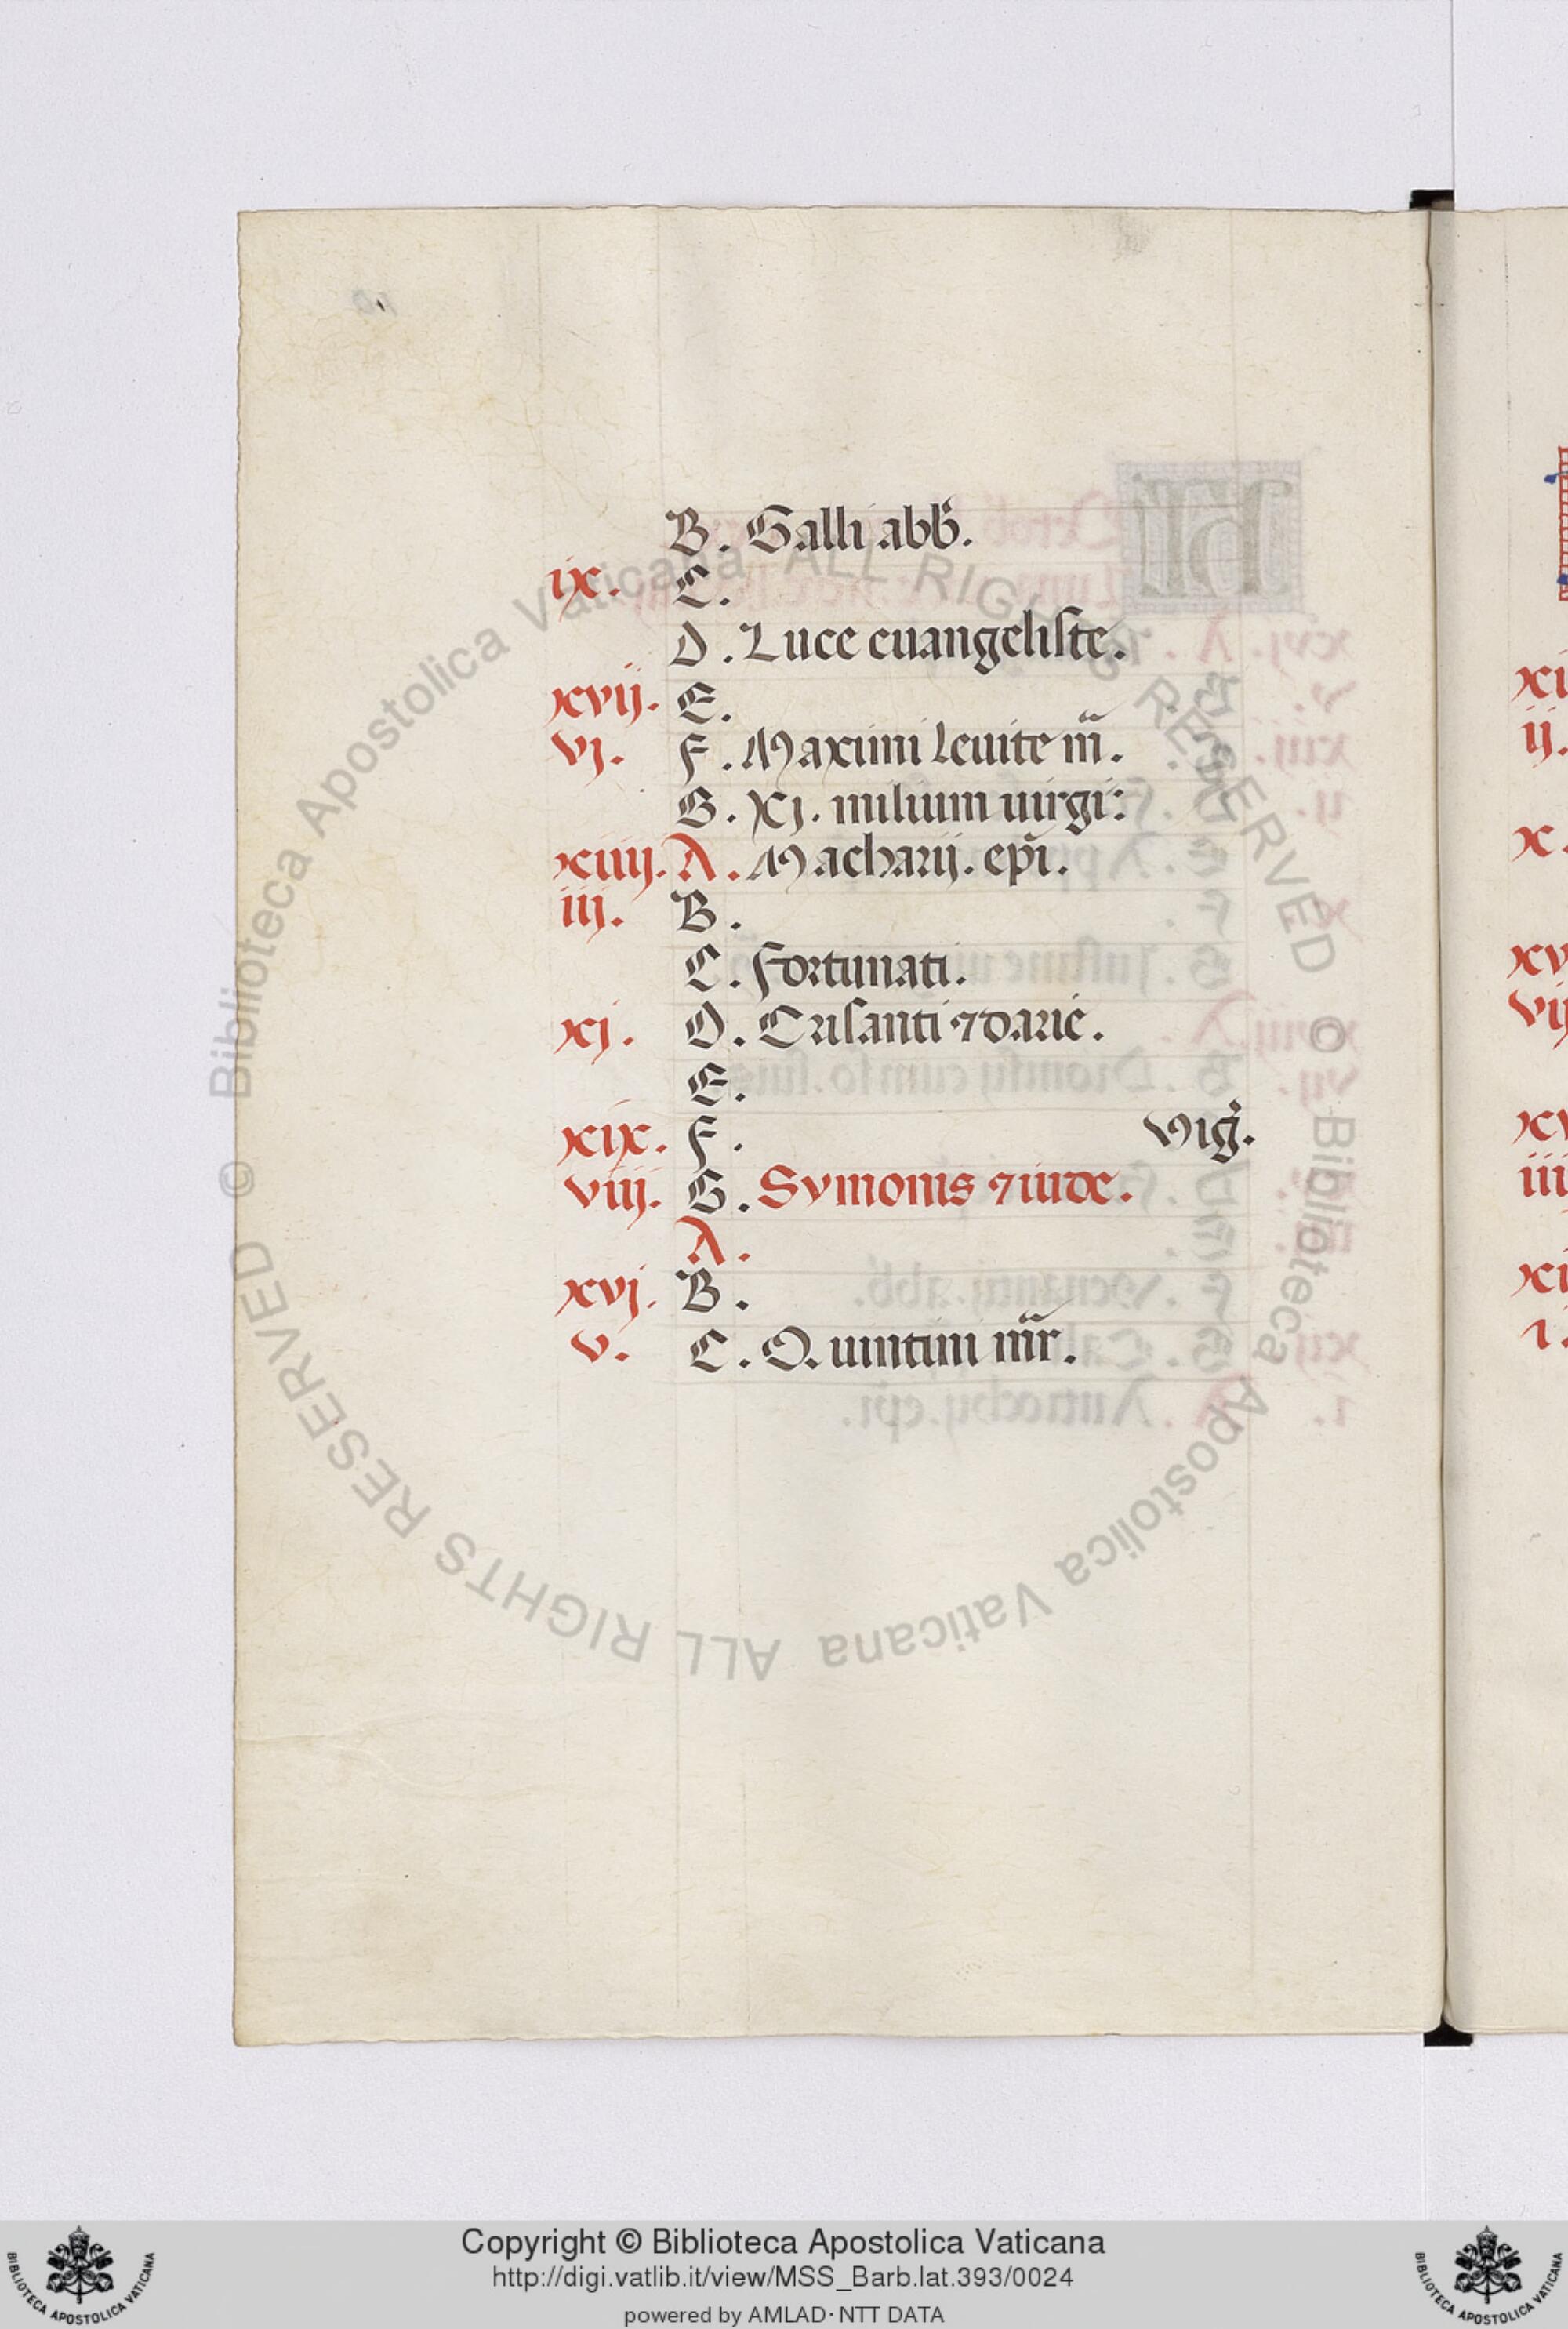 B. Galli abb̄.
ix. C.
D. Luce euangeliste.
xvij. E.
vj. F. Maximi leuite m̄.
G. xj. milium uirgi:
xiiij. A. Macharij. ep̄i.
iij. B.
C. Fortunati.
xj. D. Crisanti ⁊ darie.
E.
xix. F. Viḡ.
viij. G. Symonis ⁊ iude.
A.
xvj. B.
v. C. Quintini m̄r.
xi
ij.
x.
xv
vij
xv
iii
xi
i.
© Biblioteca Apostolica Vaticana ALL RIGHTS RESERVED © Biblioteca Apostolica Vaticana ALL RIGHTS RESERVED
Copyright © Biblioteca Apostolica Vaticana
http://digi.vatlib.it/view/MSS_Barb.lat.393/0024
powered by AMLAD·NTT DATA
BIBLIOTECA APOSTOLICA VATICANA
BIBLIOTECA APOSTOLICA VATICANA